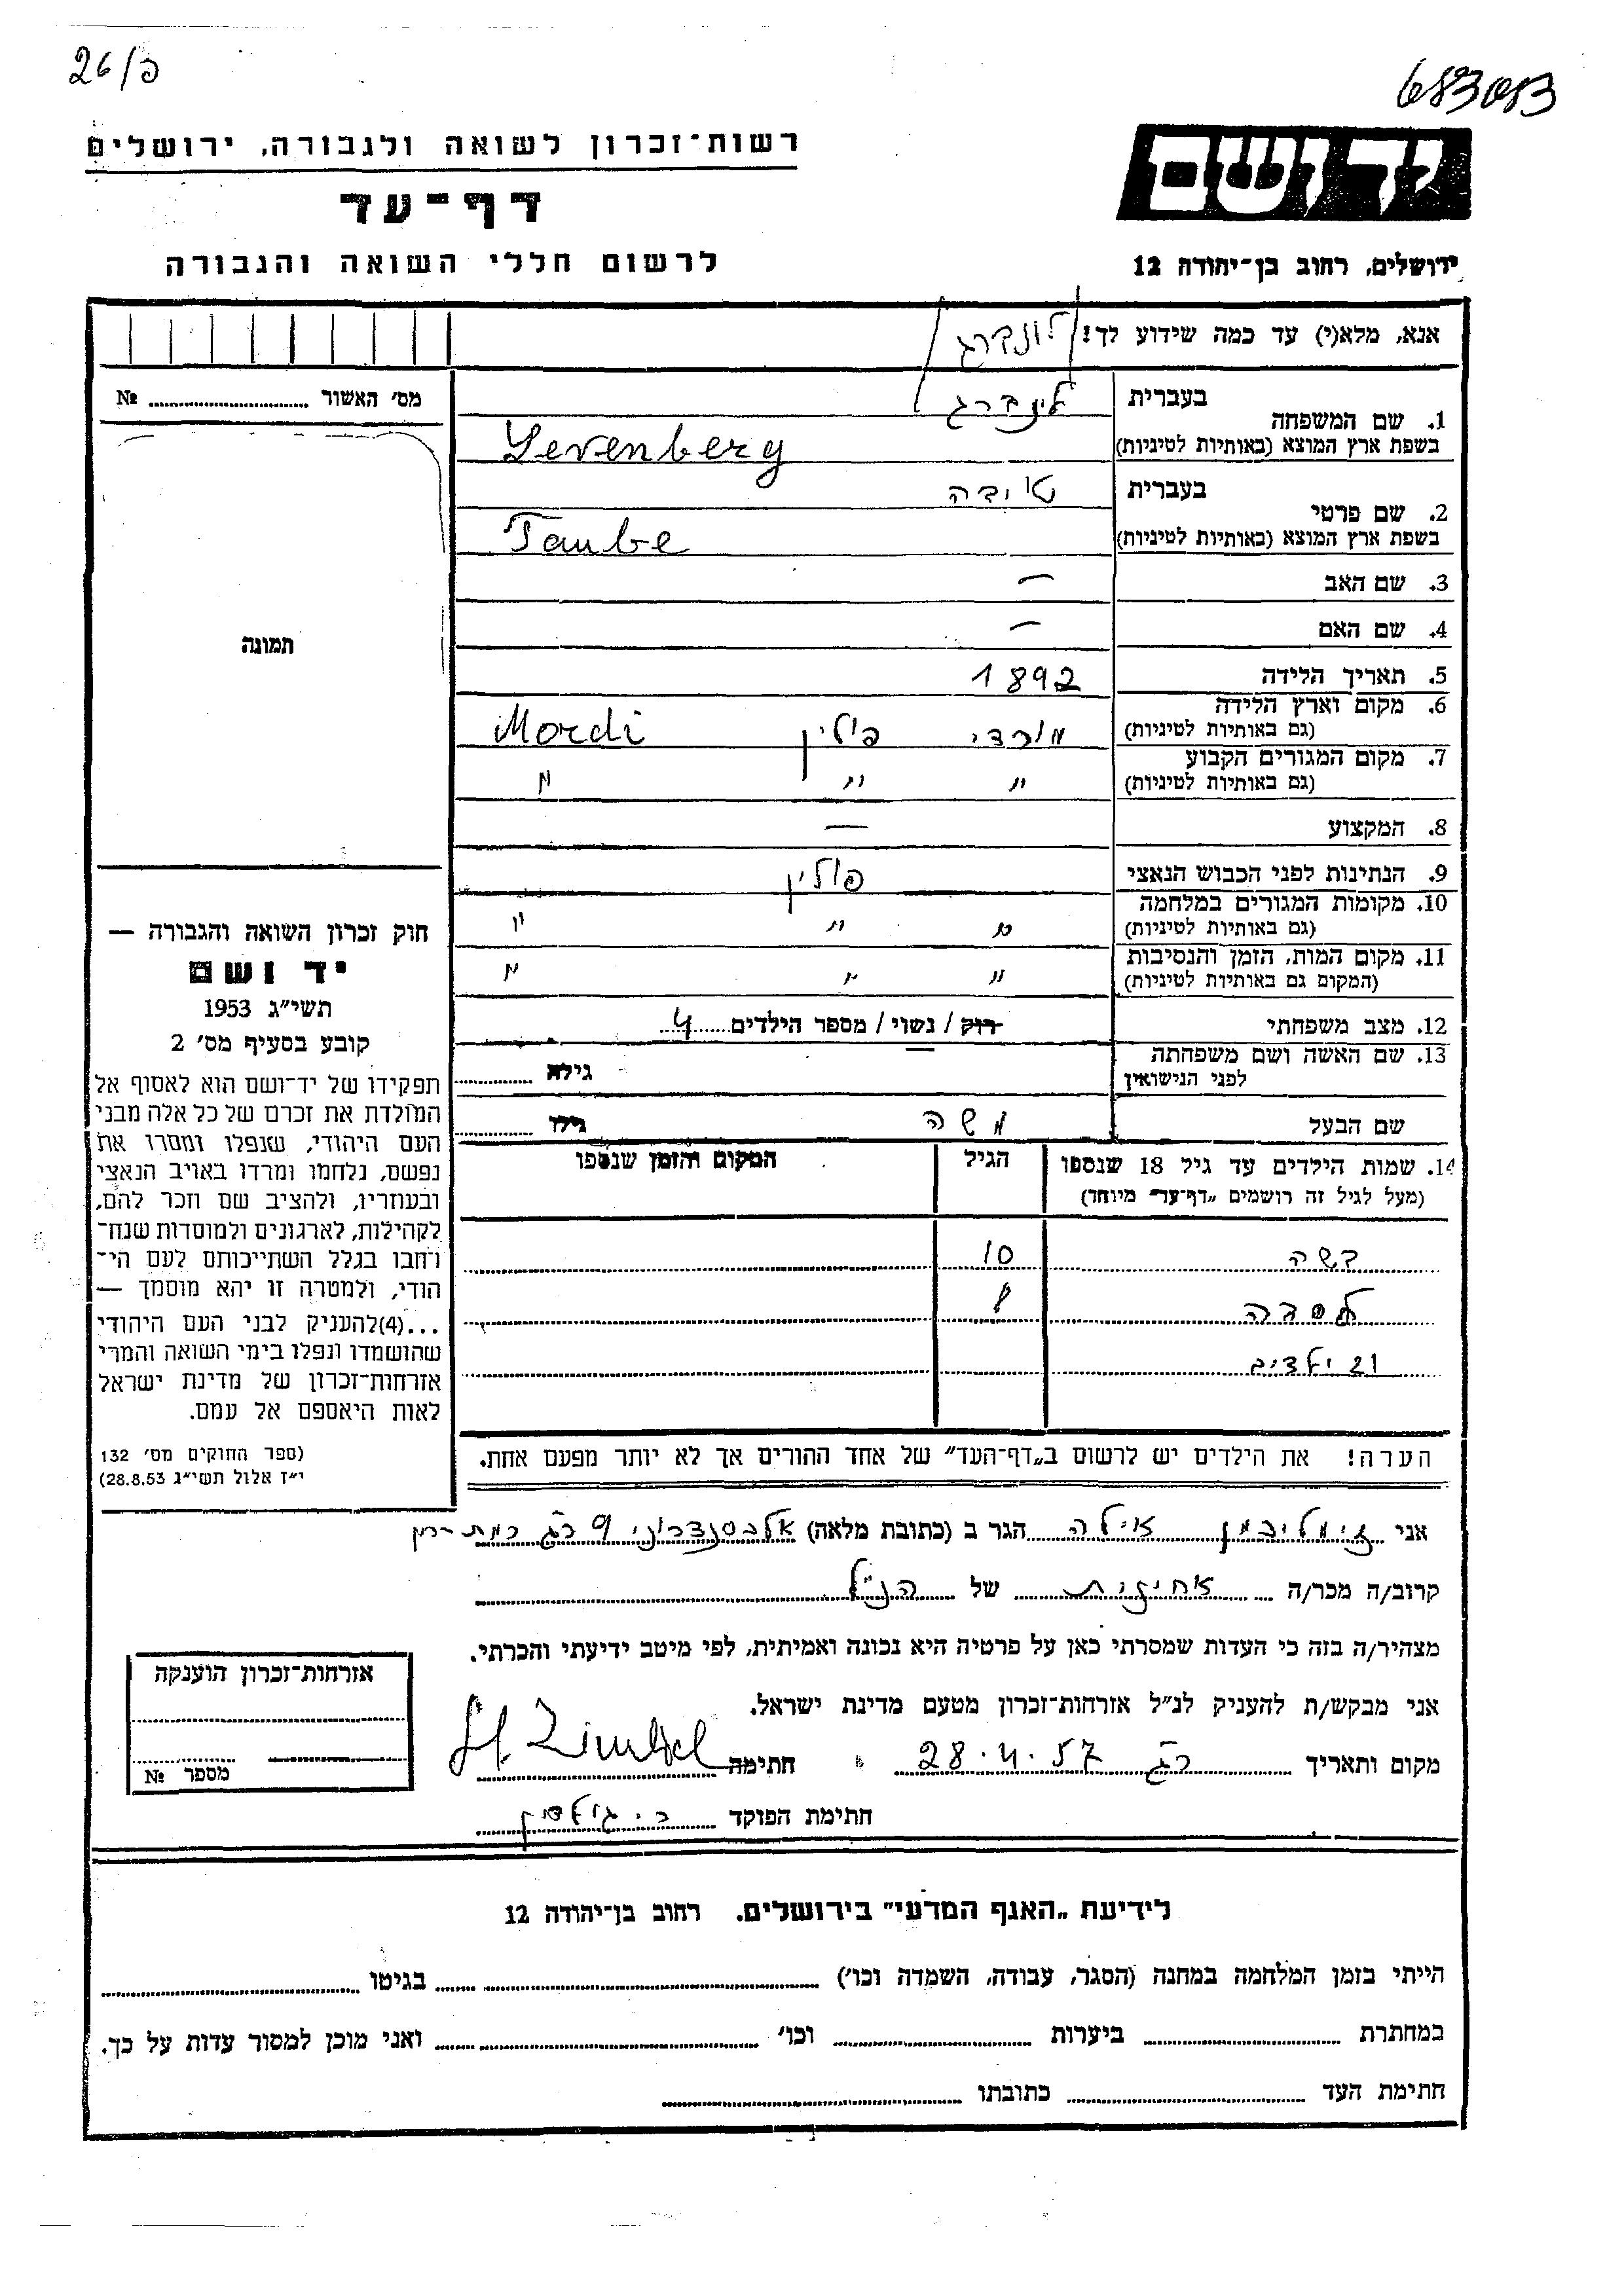 26/פ
683083
רשות־זכרון לשואה ולגבורה, ירושלים
דף־עד
לרשום חללי השואה והגבורה
יד ושם
ירושלים, רחוב בן־יהודה 12
אנא, מלא(י) עד כמה שידוע לך!
מס׳ האשור № 
1. שם המשפחה בעברית
בשפת ארץ המוצא (באותיות לטיניות) Levenberg
2. שם פרטי בעברית טויבה
בשפת ארץ המוצא (באותיות לטיניות) Taube
3. שם האב —
4. שם האם —
5. תאריך הלידה 1892
6. מקום וארץ הלידה (גם באותיות לטיניות) מורדי פולין Mordi
7. מקום המגורים הקבוע (גם באותיות לטיניות) " " "
8. המקצוע —
9. הנתינות לפני הכבוש הנאצי פולין
10. מקומות המגורים במלחמה (גם באותיות לטיניות) " " "
11. מקום המות, הזמן והנסיבות (המקום גם באותיות לטיניות) " " "
12. מצב משפחתי רוק / נשוי / מספר הילדים 4
13. שם האשה ושם משפחתה לפני הנישואין — גילה
שם הבעל משה גילו
14. שמות הילדים עד גיל 18 שנספו (מעל לגיל זה רושמים „דף־עד״ מיוחד) הגיל המקום והזמן שנספו
10
8
ו2 ילדים
הערה! את הילדים יש לרשום ב„דף־העד״ של אחד ההורים אך לא יותר מפעם אחת.
תמונה
חוק זכרון השואה והגבורה —
יד ושם
תשי״ג 1953
קובע בסעיף מס׳ 2
תפקידו של יד־ושם הוא לאסוף אל
המולדת את זכרם של כל אלה מבני
העם היהודי, שנפלו ומסרו את
נפשם, נלחמו ומרדו באויב הנאצי
ובעוזריו, ולהציב שם וזכר להם,
לקהילות, לארגונים ולמוסדות שנח־
רחבו בגלל השתייכותם לעם הי־
הודי, ולמטרה זו יהא מוסמך —
...(4)להעניק לבני העם היהודי
שהושמדו ונפלו בימי השואה והמרי
אזרחות־זכרון של מדינת ישראל
לאות היאספם אל עמם.
(ספר החוקים מס׳ 132
י״ז אלול תשי״ג 28.8.53)
אני זימליכמן אילה הגר ב (כתובת מלאה) 9 רג רמת־גן
קרוב/ה מכר/ה אחינית של הנ״ל
מצהיר/ה בזה כי העדות שמסרתי כאן על פרטיה היא נכונה ואמיתית, לפי מיטב ידיעתי והכרתי.
אני מבקש/ת להעניק לנ״ל אזרחות־זכרון מטעם מדינת ישראל.
מקום ותאריך רג 28.4.57 חתימה
חתימת הפוקד
אזרחות־זכרון הוענקה
מספר №
לידיעת „האגף המדעי״ בירושלים. רחוב בן־יהודה 12
הייתי בזמן המלחמה במחנה (הסגר, עבודה, השמדה וכו׳) בגיטו
במחתרת ביערות וכו׳ ואני מוכן למסור עדות על כך.
חתימת העד כתובתו